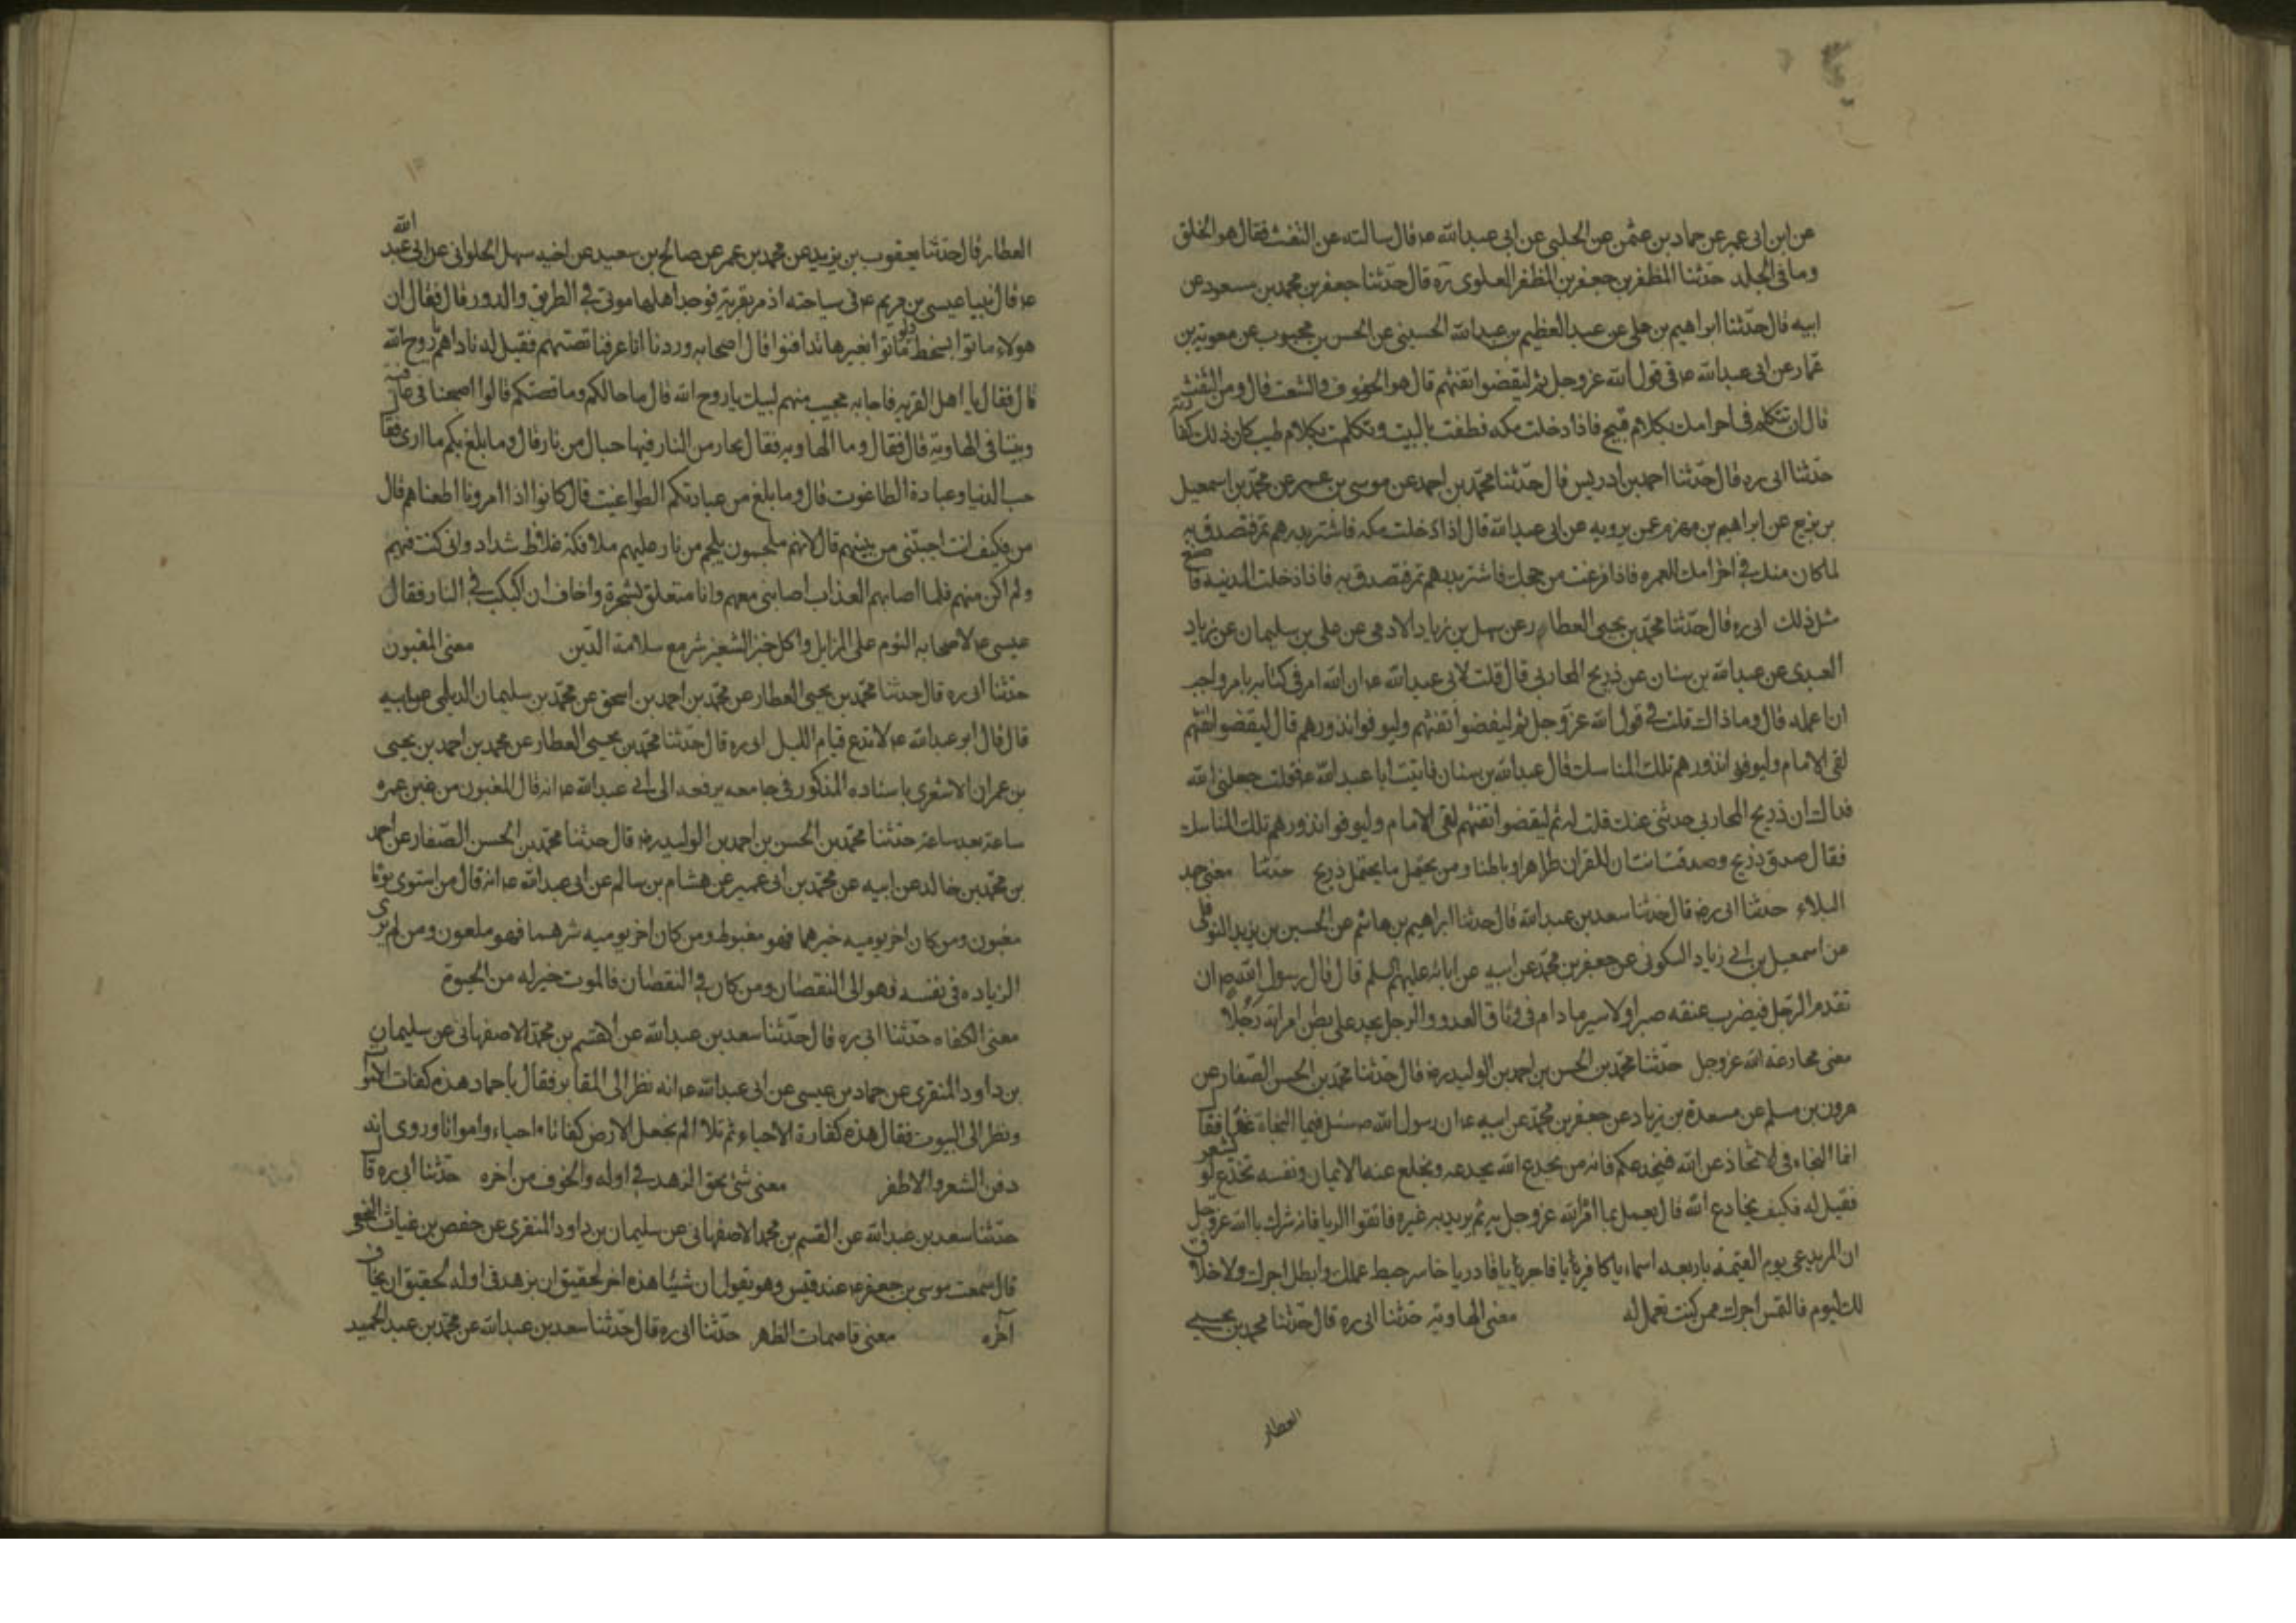 عن ابن ابى عمير عن حماد بن عثمن عن الحلبى عن ابى عبدالله ع قال سالته عن التفث فقال هو الحلق
وما فى الجلد حدثنا المظفر بن جعفر بن المظفر العلوى ره قال حدثنا جعفر بن محمد بن مسعود عن
ابيه قال حدثنا ابراهيم بن على عن عبد العظيم بن عبدالله الحسينى عن الحسن بن محبوب عن معوية بن
عمار عن ابى عبدالله ع فى قول الله عز وجل ثم ليقضوا تفثهم قال هو الحفوف والشعث قال ومن التفث
قال ان تتكلم فى احرامك بكلام قبيح فاذا دخلت مكه فطفت بالبيت وتكلمت بكلام طيب كان ذلك كفارته
حدثنا ابى ره قال حدثنا احمد بن ادريس قال حدثنا محمد بن احمد عن موسى بن عمر عن محمد بن اسمعيل
بن بزيع عن ابراهيم بن مهزم عمن يرويه عن ابى عبدالله قال اذا دخلت مكه فاشتر بدرهم تمر فتصدق به
لما كان منك فى احرامك العمره فاذا فرغت من حجك فاشتر بدرهم تمر فتصدق به فاذا دخلت المدينه فاصنع
مثل ذلك ابى ره قال حدثنا محمد بن يحيى العطار عن سهل بن زياد الادمى عن على بن سليمان عن زياد
العبدى عن عبدالله بن سنان عن ذريح المحاربى قال قلت لابى عبدالله ع ان الله امر فى كتابه بامر واحب
ان اعمله قال وما ذاك قلت فى قول الله عز وجل ثم ليقضوا تفثهم وليوفوا نذورهم قال ليقضوا تفثهم
لقى الامام وليوفوا نذورهم تلك المناسك قال عبدالله بن سنان فاتيت ابا عبدالله ع فقلت جعلنى الله
فداك ان ذريح المحاربى حدثنى عنك قلت له ثم ليقضوا تفثهم لقى الامام وليوفوا نذورهم تلك المناسك
فقال صدق ذريح وصدقت انت ان للقران ظاهرا وباطنا ومن يحتمل ما يحتمل ذريح حدثنا معنى جهد
البلاء حدثنا ابى ره قال حدثنا سعد بن عبدالله قال حدثنا ابراهيم بن هاشم عن الحسين بن يزيد النوفلى
عن اسمعيل بن ابى زياد السكونى عن جعفر بن محمد عن ابيه عن ابائه عليهم السلم قال قال رسول الله ص ان
تقدم الرجل فيضرب عنقه صبرا والاسير ما دام فى وثاق العدو والرجل يجد على بطن امراته رجلا
معنى مخادعة الله عز وجل حدثنا محمد بن الحسن بن احمد بن الوليد ره قال حدثنا محمد بن الحسن الصفار عن
هرون بن مسلم عن مسعدة بن زياد عن جعفر بن محمد عن ابيه ع ان رسول الله ص سئل فيما النجاة غدا فقال
انما النجاه فى لا تخادعن الله فيخدعكم فانه من يخدع الله يخدعه ويخلع عنه الايمان ونفسه تخدع لو يشعر
فقيل له فكيف يخادع الله قال يعمل بما امر الله عز وجل به ثم يريد به غيره فاتقوا الريا فانه شرك بالله عز وجل
ان المريد يدعى يوم القيمة باربعه اسماء يا كافر يا فاجر يا غادر يا خاسر حبط عملك وابطل اجرك ولا خلاق
لك اليوم فالتمس اجرك ممن كنت تعمل له معنى الهاوية حدثنا ابى ره قال حدثنا محمد بن يحيى
العطار
العطار قال حدثنا يعقوب بن يزيد عن محمد بن عمر عن صالح بن سعيد عن اخيه سهل الحلوانى عن ابى عبد الله
ع قال بينا عيسى بن مريم ع فى سياحته اذ مر بقرية فوجد اهلها موتى فى الطريق والدور قال فقال ان
هولاء ماتوا بسخط ولو ماتوا بغيرها تدافنوا قال اصحابه وردنا انا عرفنا قصتهم فقيل له نادهم يا روح الله
قال فقال يا اهل القريه فاجابه مجيب منهم لبيك يا روح الله قال ما حالكم وما قصتكم قالوا اصبحنا فى عافية
وبتنا فى الهاوية قال فقال وما الهاويه فقال بحار من النار فيها جبال من نار قال وما بلغ بكم ما ارى فقال
حب الدنيا وعبادة الطاغوت قال وما بلغ من عبادتكم الطواغيت قال كانوا اذا امرونا اطعناهم قال
من فكيف انت اجبتنى من بينهم قال لانهم ملجمون بلجم من نار عليهم ملائكة غلاظ شداد وانى كنت فيهم
ولم اكن منهم فلما اصابهم العذاب اصابنى معهم وانا متعلق بشجرة واخاف ان اكبكب فى النار فقال
عيسى ع لاصحابه النوم على المزابل واكل خبز الشعير مع سلامة الدين معنى المغبون
حدثنا ابى ره قال حدثنا محمد بن يحيى العطار عن محمد بن احمد بن اسحق عن محمد بن سليمان الديلمى عن ابيه
قال قال ابو عبدالله ع لا تدع قيام الليل ابى ره قال حدثنا محمد بن يحيى العطار عن محمد بن احمد بن يحيى
بن عمران الاشعرى باسناده المذكور فى جامعه يرفعه الى ابى عبدالله ع انه قال المغبون من غبن عمره
ساعة بعد ساعة حدثنا محمد بن الحسن بن احمد بن الوليد ره قال حدثنا محمد بن الحسن الصفار عن احمد
بن محمد بن خالد عن ابيه عن محمد بن ابى عمير عن هشام بن سالم عن ابى عبدالله ع انه قال من استوى يوماه
مغبون ومن كان اخر يوميه خيرهما فهو مغبوط ومن كان اخر يوميه شرهما فهو ملعون ومن لم يرى
الزياده فى نفسه فهو الى النقصان ومن كان فى النقصان فالموت خير له من الحيوة
معنى الكفاه حدثنا ابى ره قال حدثنا سعد بن عبدالله عن القسم بن محمد الاصفهانى عن سليمان
بن داود المنقرى عن حماد بن عيسى عن ابى عبدالله ع انه نظر الى المقابر فقال يا حماد هذه كفات الاموات
ونظر الى البيوت فقال هذه كفارة الاحياء ثم تلا الم نجعل الارض كفاتا احياء وامواتا وروى انه
دفن الشعر والاظفر معنى شئ يحق الزهد فى اوله والخوف من اخره حدثنا ابى ره قال
حدثنا سعد بن عبدالله عن القسم بن محمد الاصفهانى عن سليمان بن داود المنقرى عن حفص بن غياث النخعى
قال سمعت موسى بن جعفر ع عند قبر وهو يقول ان شيئا هذا اخره لحقيق ان يزهد فى اوله لحقيق ان يخاف
آخره معنى قاصمات الظهر حدثنا ابى ره قال حدثنا سعد بن عبدالله عن محمد بن عبد الحميد